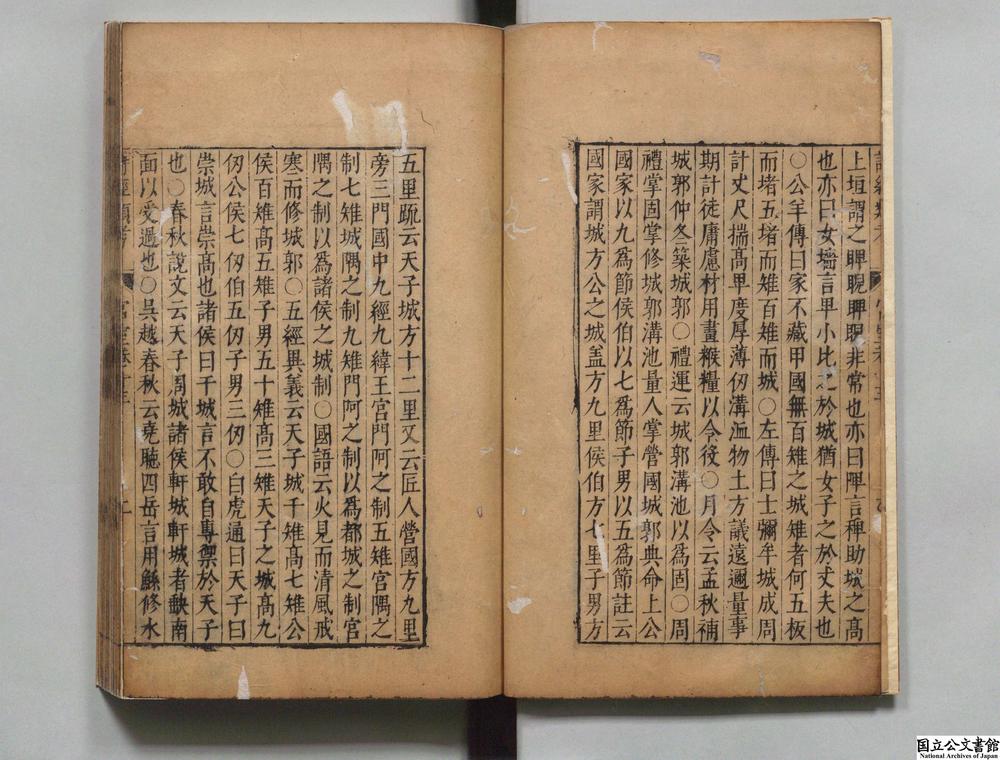 上垣謂之睥睨睥睨非常也亦曰陴言裨助城之高
也亦曰女墻言卑小比之於城猶女子之於丈夫也
○公羊傳曰家不藏甲國無百雉之城雉者何五板
而堵五堵而雉百雉而城○左傳曰士彌牟城成周
計丈尺揣高卑度厚薄仞溝洫物土方議遠邇量事
期計徒庸慮材用畫糇糧以令役○月令云孟秋補
城郭仲冬築城郭○禮運云城郭溝池以爲固○周
禮掌固掌修城郭溝池量人掌營國城郭典命上公
國家以九爲節侯伯以七爲節子男以五爲節註云
國家謂城方公之城盖方九里侯伯方七里子男方
五里疏云天子城方十二里又云匠人營國方九里
旁三門國中九經九緯王宮門阿之制五雉宮隅之
制七雉城隅之制九雉門阿之制以爲都城之制宮
隅之制以爲諸侯之城制○國語云火見而清風戒
寒而修城郭○五經異義云天子城千雉高七雉公
侯百雉高五雉子男五十雉高三雉天子之城高九
仞公侯七仞伯五仞子男三仞○白虎通曰天子曰
崇城言崇高也諸侯曰干城言不敢自專禦於天子
也○春秋說文云天子周城諸侯軒城軒城者缺南
面以受過也○吳越春秋云堯聴四岳言用鯀修水
詩經類考
国立公文書館
National Archives of Japan